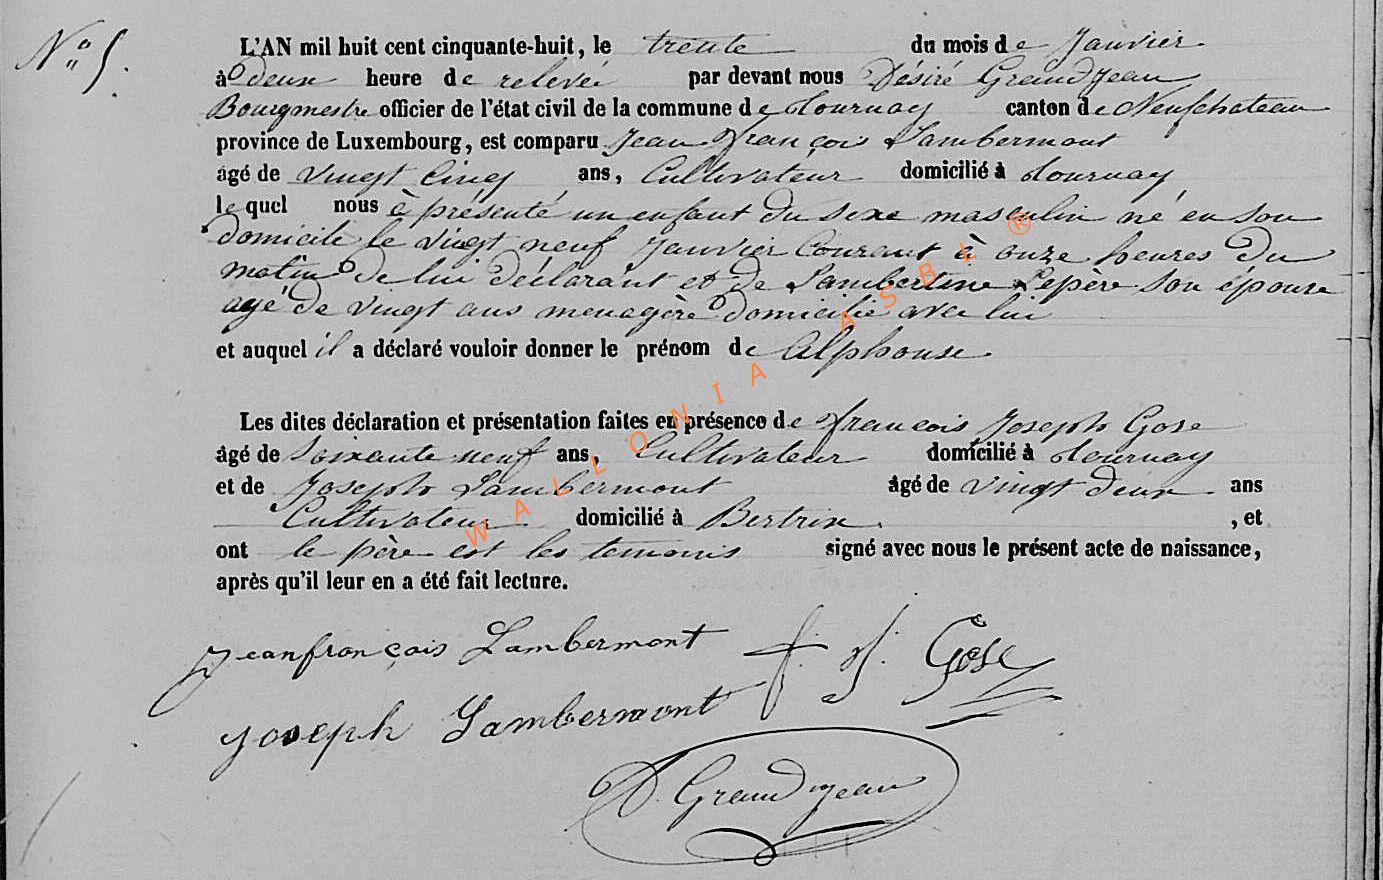 N° 5.
L'AN mil huit cent cinquante-huit, le trente du mois de Janvier
à deux heure de relevée par devant nous Désiré Grandjean
Bourgmestre officier de l'état civil de la commune de tournay canton de Neufchateau
province de Luxembourg, est comparu Jean françois Lambermont
âgé de vingt cinq ans, Cultivateur domicilié à tournay
lequel nous à présenté un enfant du sexe masculin né en son
domicile le vingt neuf Janvier Courant à onze heures du
matin de lui déclarant et de Lambertine Lepère son épouse
agé de vingt ans menagère domicilié avec lui
et auquel il a déclaré vouloir donner le prénom de Alphonse
Les dites déclaration et présentation faites en présence de françois Joseph Gose
âgé de Soixante neuf ans, Cultivateur domicilié à tournay
et de Joseph Lambermont âgé de vingt deux ans
Cultivateur domicilié à Bertrix , et
ont le père est les temoins signé avec nous le présent acte de naissance,
après qu'il leur en a été fait lecture.
Jeanfrançois Lambermont f. J. Gose
Joseph Lambermont
D. Grandjean
WALLONIA ASBL ®